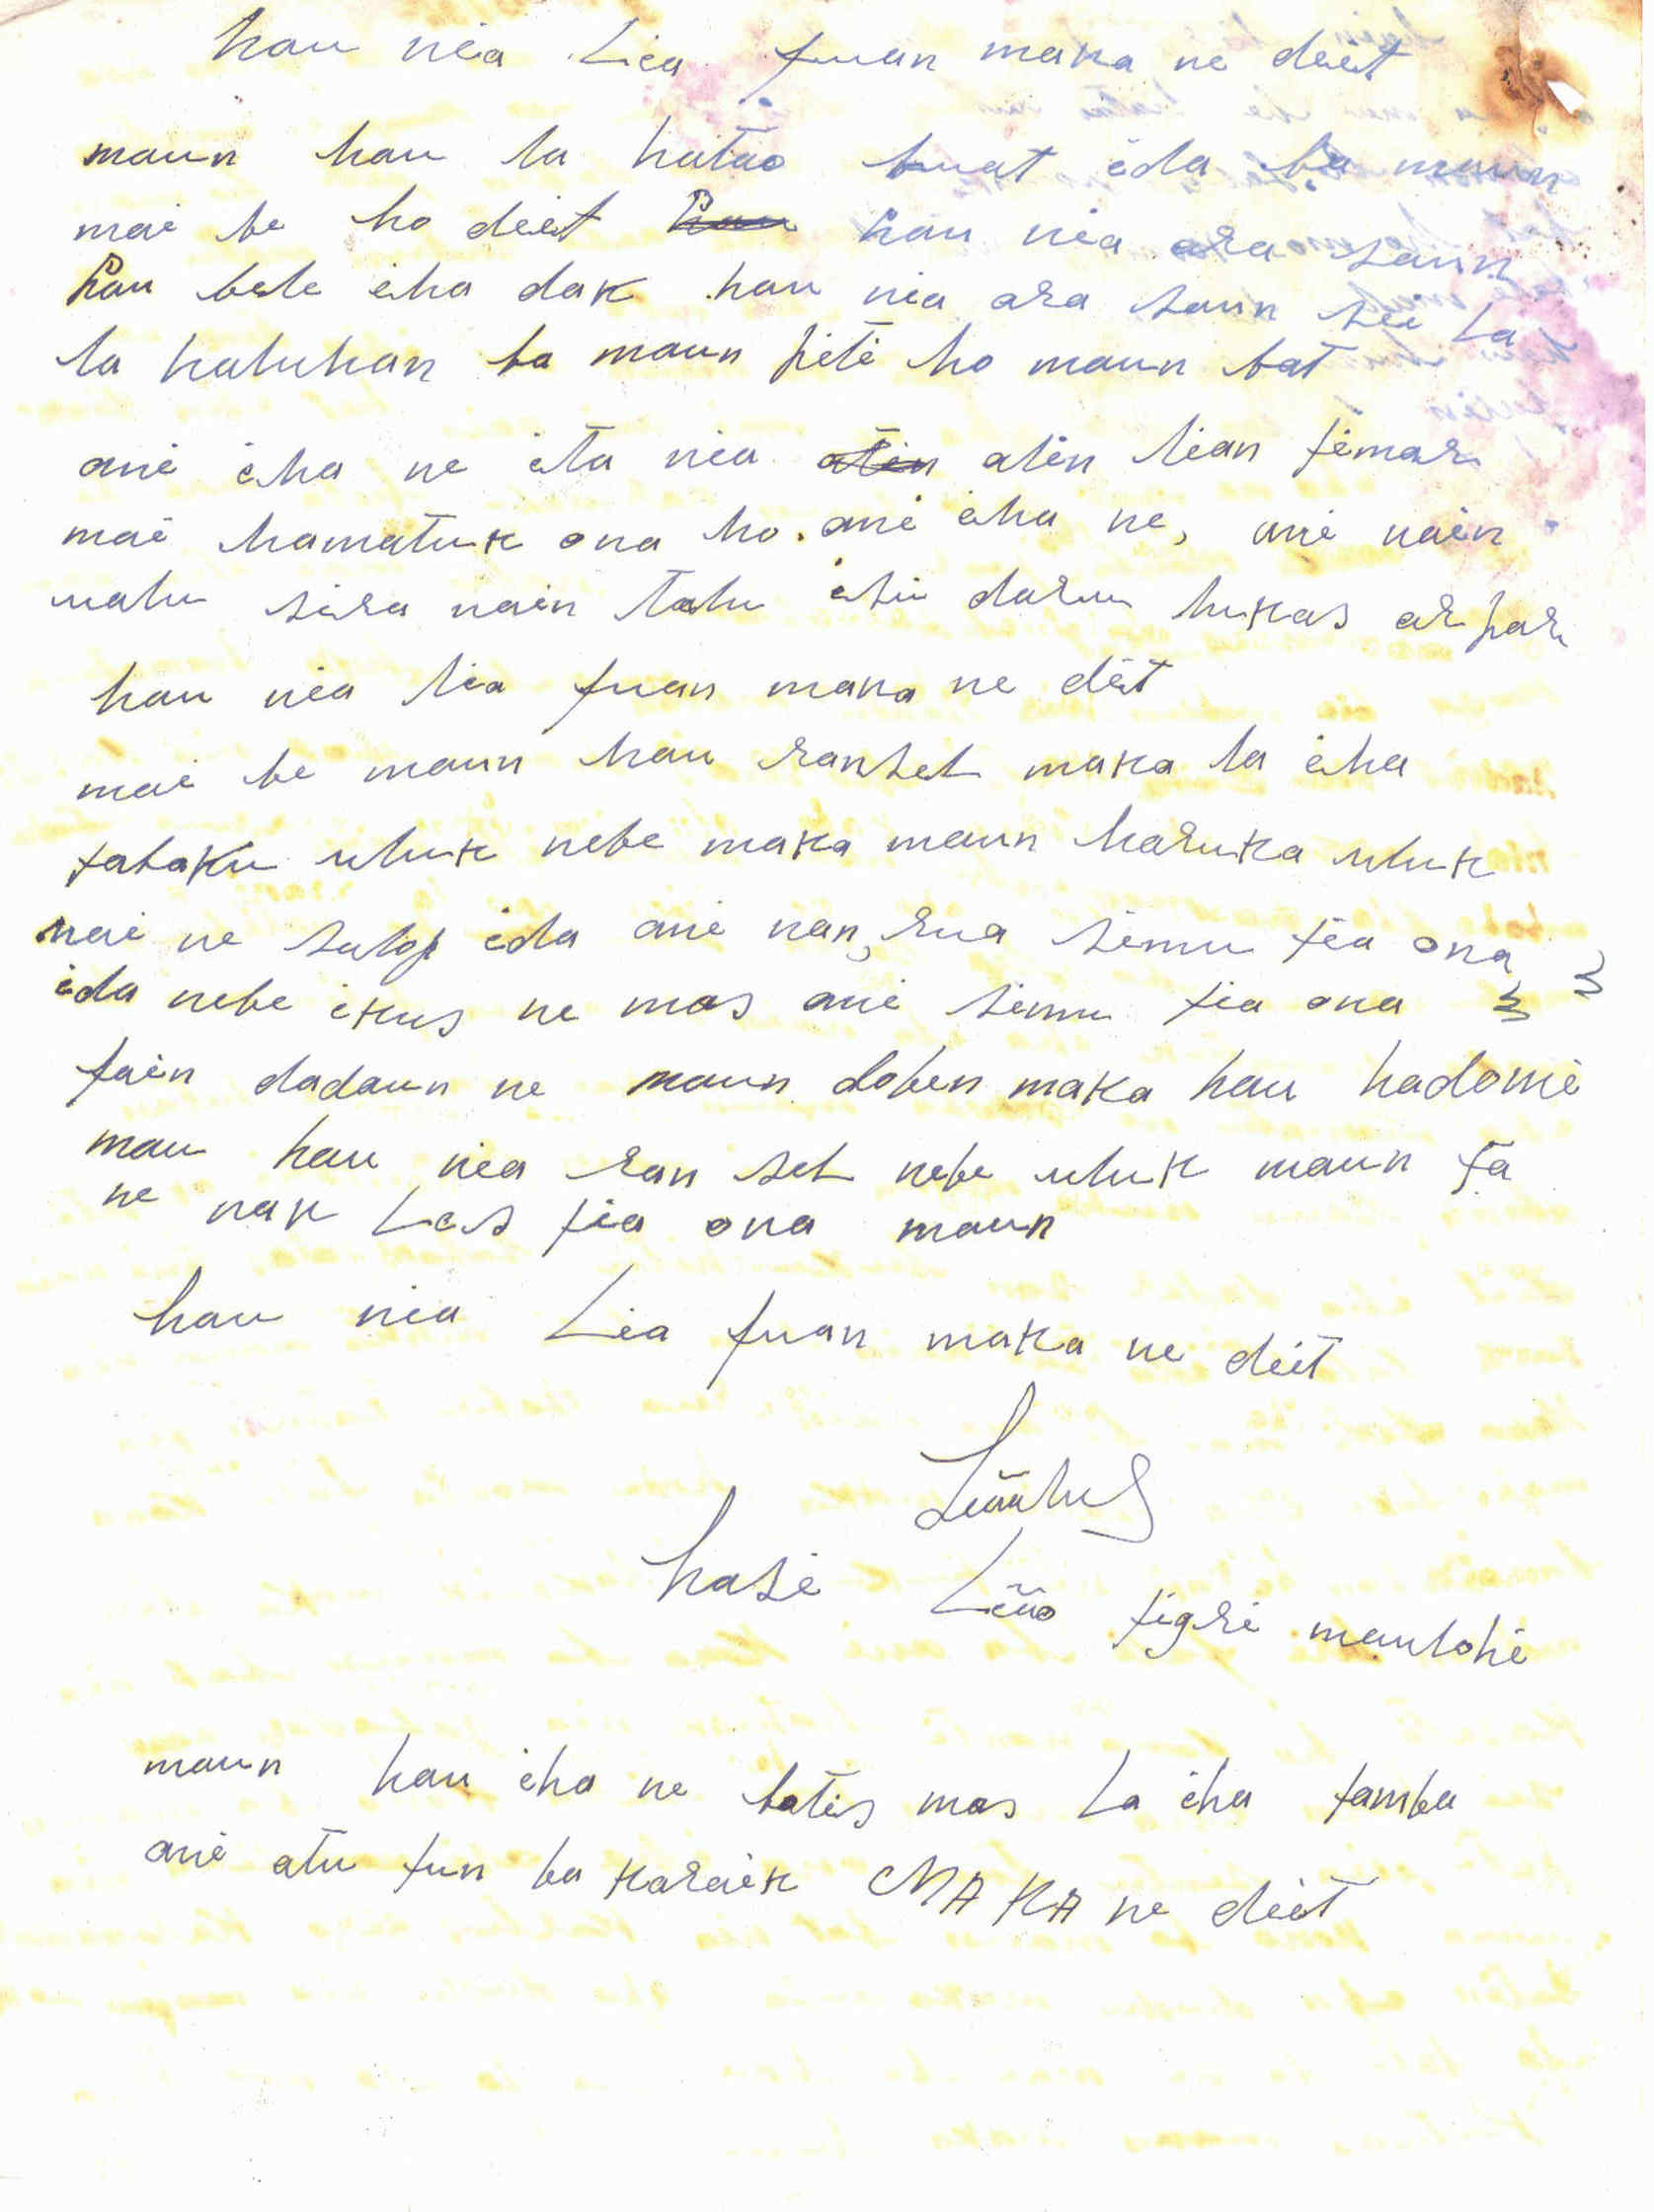 hau nia Lia fuan maka ne deit
maun hau la hatao buat ida ba maun
mai be ho deit hau nia ora saun
hau bele iha dak hau nia ora saun sei La
la haluhan ba maun piti ho maun bat
ami iha ne ita nia alin lian timor
mai hamatuk ona ho. ami iha ne, ami nain
ualu sira nain tolu isu daru lukas arpar
hau nia lia fuan maka ne deit
mai be maun hau ransel maka la iha
tabaku uluk nebe maka maun haruka uluk
mai ne sulop ida ami nan, rua simu tia ona
ida nebe ikus ne mas ami simu tia ona
fain dadaun ne maun doben maka hau hadomi
mau hau nia ran sel nebe uluk maun fa
ne nak Les tia ona maun
hau nia Lia fuan maka ne deit
hasi Liño tigri maulohi
maun hau iha ne batis mas La iha tamba
ami atu tun ba karaik MAKA ne deit